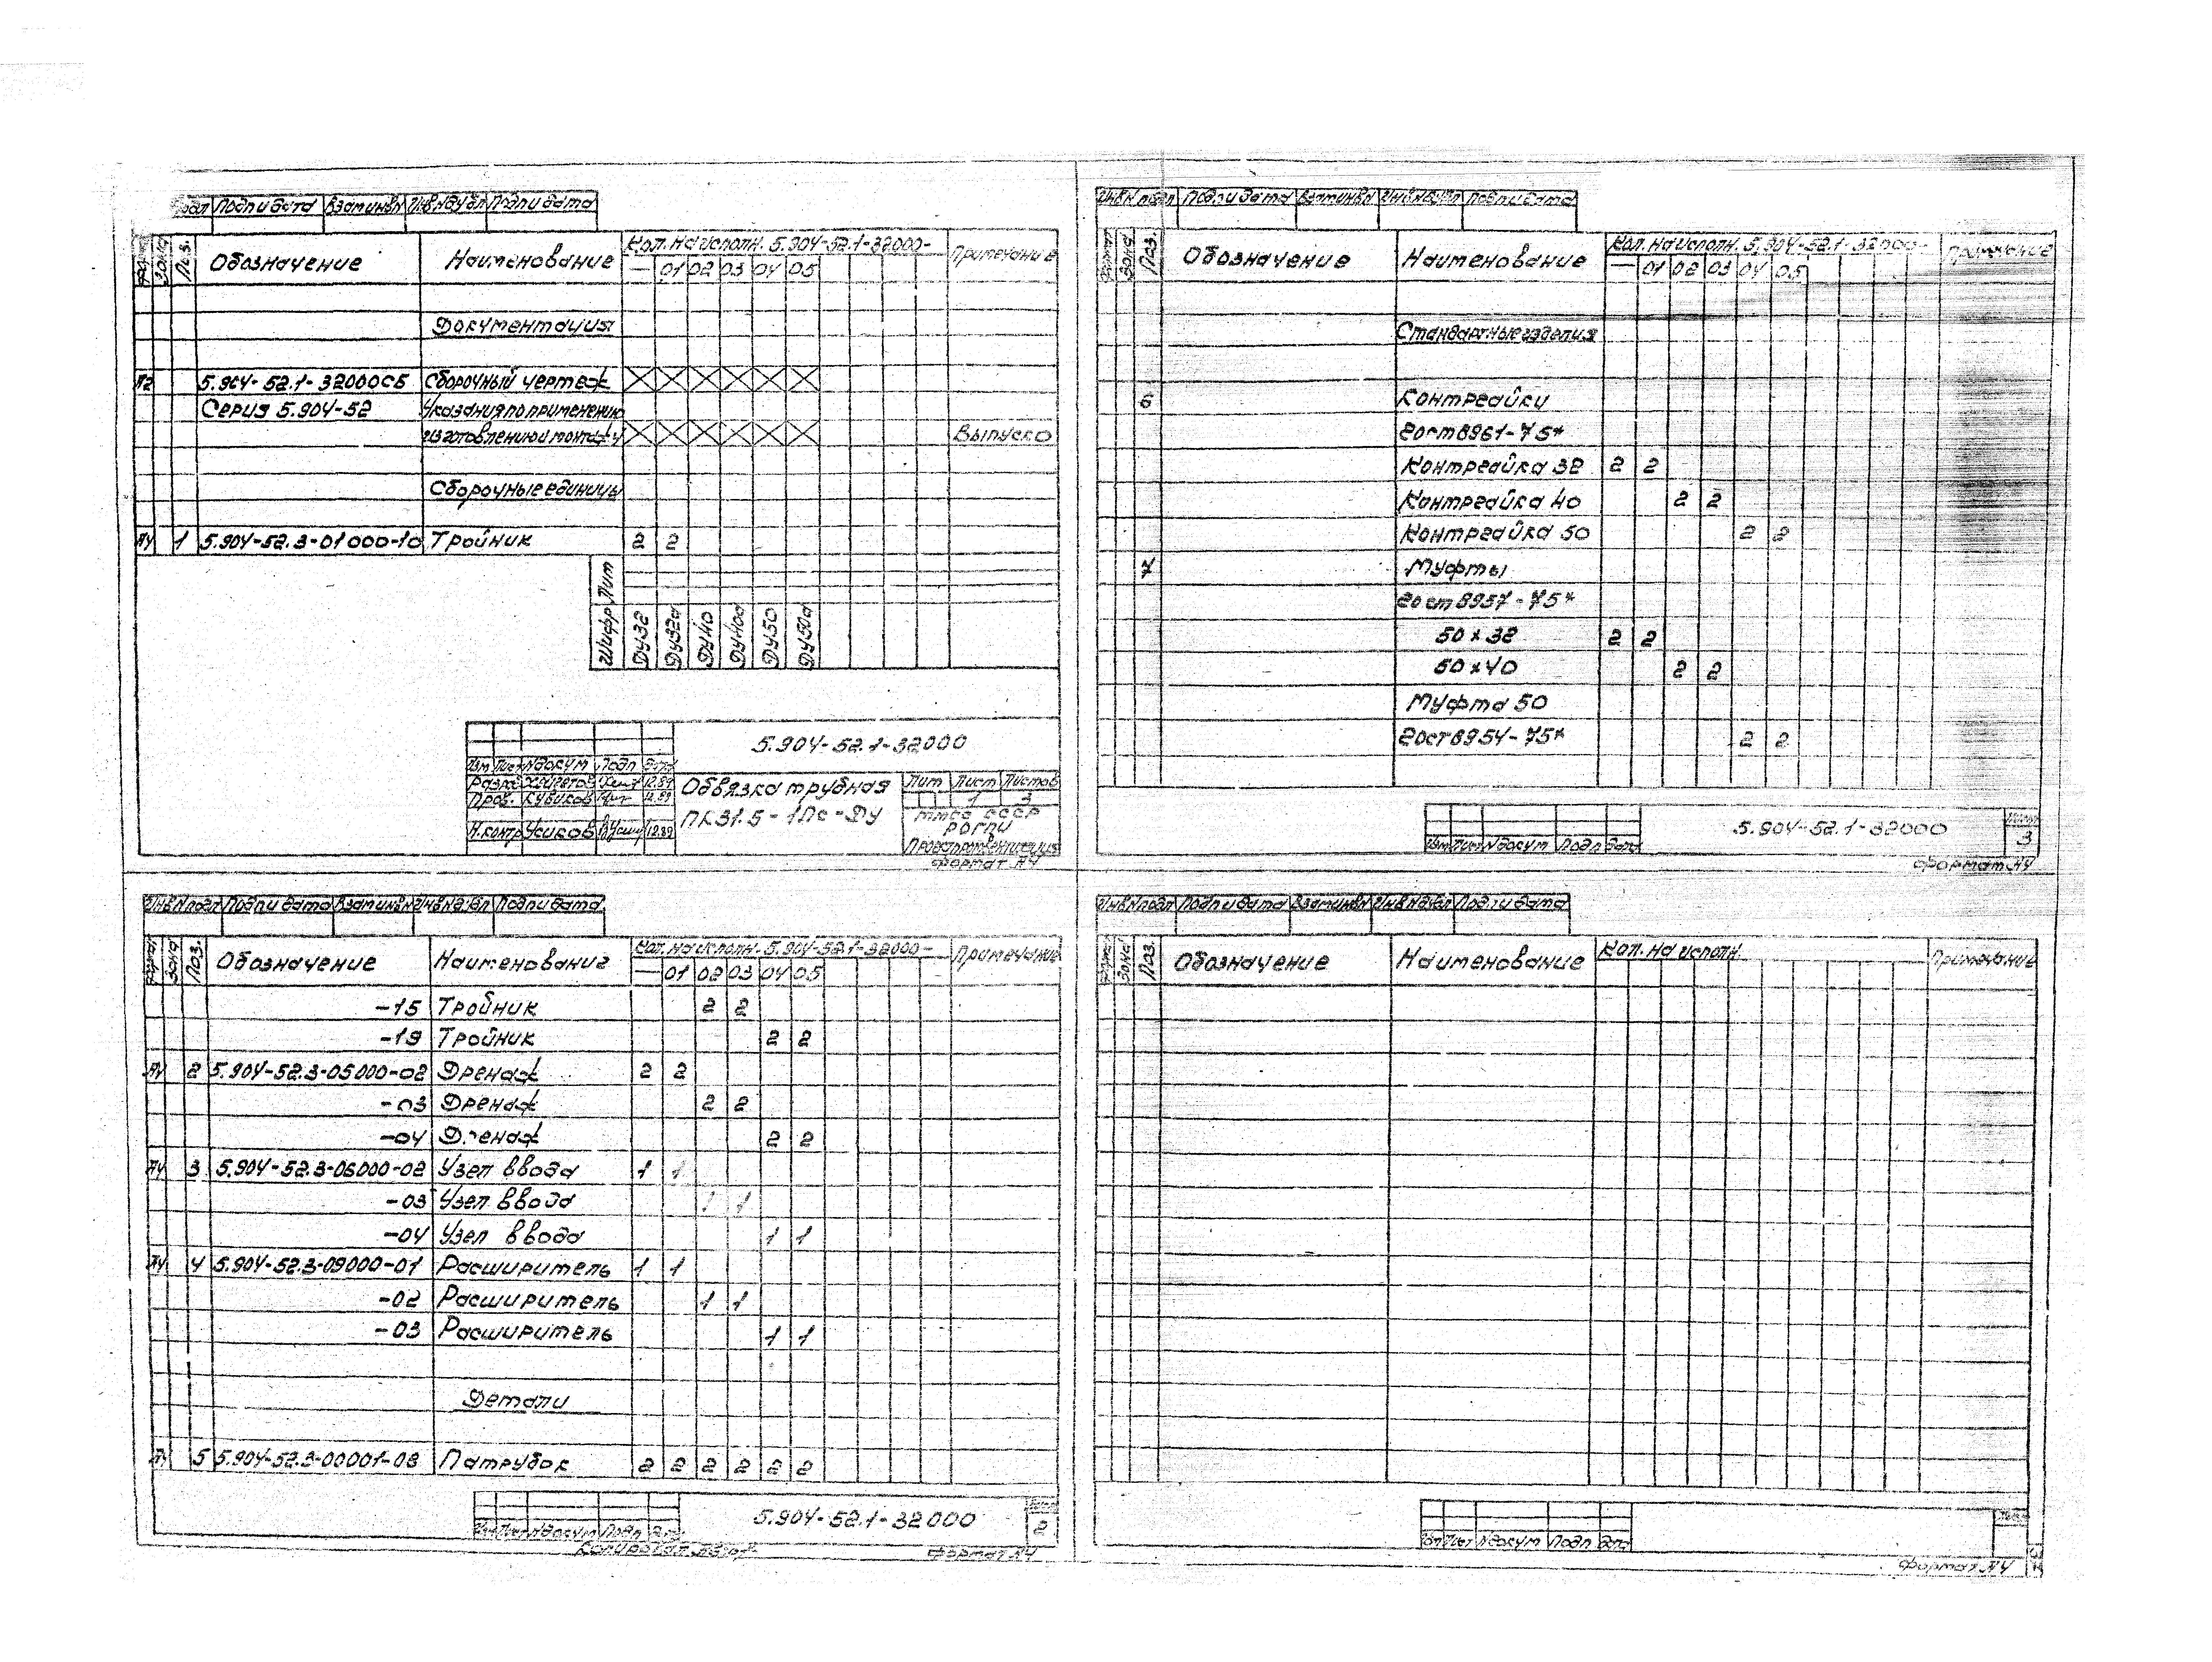 Подп и дата Взам инв N Инв N дубл Подп и дата
Формат Зона Поз. Обозначение Наименование Кол. на исполн. 5.904-52.1-32000- Примечание
— 01 02 03 04 05
Документация
А2 5.904-52.1-32000СБ Сборочный чертеж
Серия 5.904-52 Указания по применению
изготовлению и монтажу Выпуск 0
Сборочные единицы
А4 1 5.904-52.3-01000-10 Тройник 2 2
Лит
Шифр Ду32 Ду32а Ду40 Ду40а Ду50 Ду50а
5.904-52.1-32000
Изм Лист N докум Подп Дата
Разраб 12.89
Пров. Кубиков 12.89
Н.контр Усиков 12.89
Обвязка трубная
ПК31.5-1Пс-Ду
Лит Лист Листов
1 3
ММСС СССР
РОГПИ
Формат А4
Инв N подл Подп и дата Взам инв N Инв N дубл Подп и дата
Формат Зона Поз. Обозначение Наименование Кол. на исполн. 5.904-52.1-32000- Примечание
— 01 02 03 04 05
-15 Тройник 2 2
-19 Тройник 2 2
А4 2 5.904-52.3-05000-02 Дренаж 2 2
-03 Дренаж 2 2
-04 Дренаж 2 2
А4 3 5.904-52.3-06000-02 Узел ввода 1 1
-03 Узел ввода 1 1
-04 Узел ввода 1 1
А4 4 5.904-52.3-09000-01 Расширитель 1 1
-02 Расширитель 1 1
-03 Расширитель 1 1
Детали
А4 5 5.904-52.3-00001-08 Патрубок 2 2 2 2 2 2
5.904-52.1-32000
Лист
2
Изм Лист N докум Подп Дата
Копировал
Формат А4
Инв N подл Подп и дата Взам инв N Инв N дубл Подп и дата
Формат Зона Поз. Обозначение Наименование Кол. на исполн. 5.904-52.1-32000- Примечание
— 01 02 03 04 05
Стандартные изделия
6 Контргайки
Гост 8961-75*
Контргайка 32 2 2
Контргайка 40 2 2
Контргайка 50 2 2
7 Муфты
Гост 8957-75*
50 х 32 2 2
50 х 40 2 2
Муфта 50
Гост 8954-75* 2 2
5.904-52.1-32000
Лист
3
Изм Лист N докум Подп Дата
Формат А4
Инв N подл Подп и дата Взам инв N Инв N дубл Подп и дата
Формат Зона Поз. Обозначение Наименование Кол. на исполн. Примечание
Изм Лист N докум Подп Дата
Лист
Формат А4